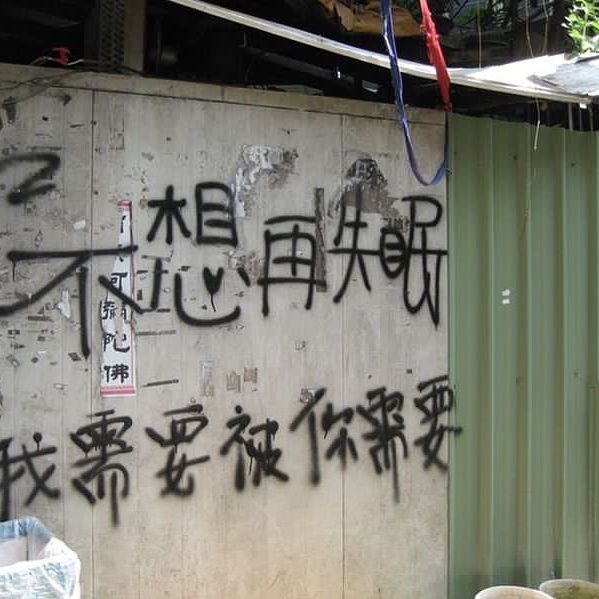 不想再失眠
我需要被你需要
阿彌陀佛